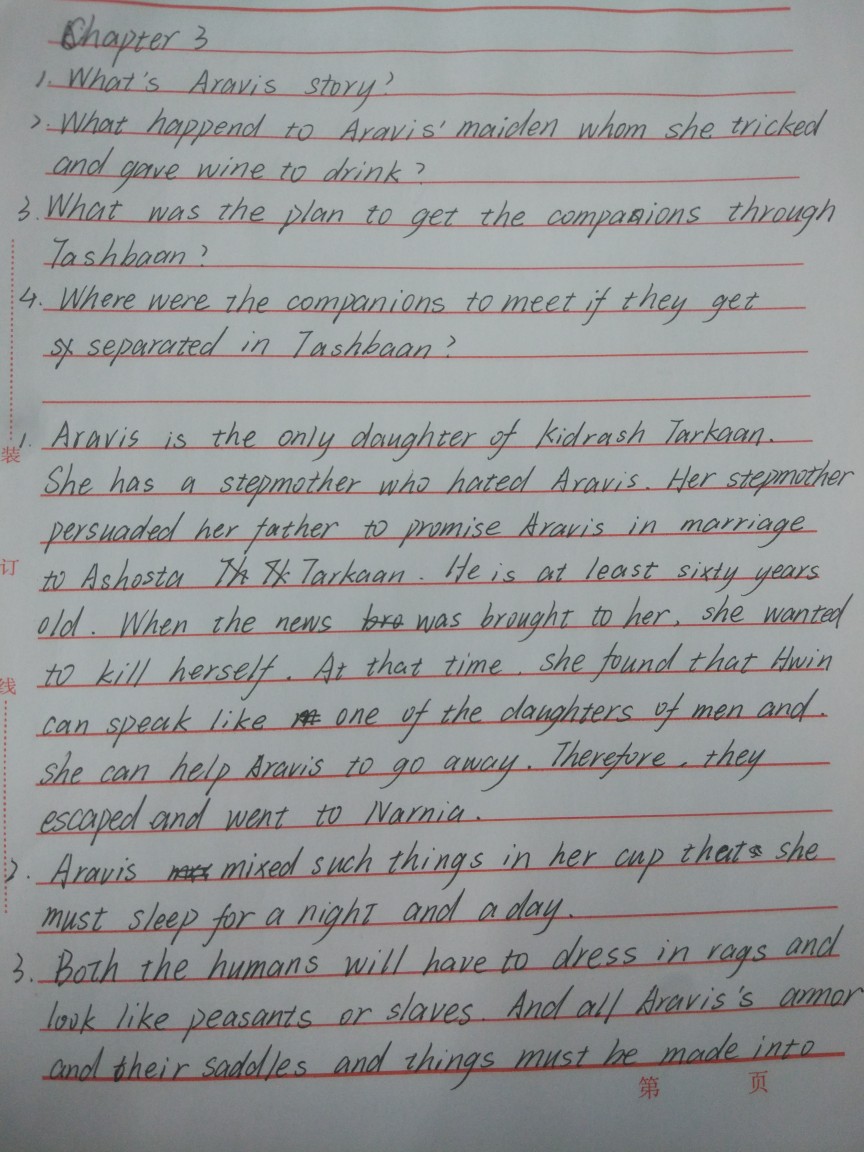 Chapter 3
1. What's Aravis story?
2. What happend to Aravis' maiden whom she tricked
and gave wine to drink?
3. What was the plan to get the companions through
Tashbaan?
4. Where were the companions to meet if they get
separated in Tashbaan?
1. Aravis is the only daughter of Kidrash Tarkaan.
She has a stepmother who hated Aravis. Her stepmother
persuaded her father to promise Aravis in marriage
to Ashosta Tarkaan. He is at least sixty years
old. When the news was brought to her, she wanted
to kill herself. At that time, she found that Hwin
can speak like one of the daughters of men and.
she can help Aravis to go away. Therefore, they
escaped and went to Narnia.
2. Aravis mixed such things in her cup that she
must sleep for a night and a day.
3. Both the humans will have to dress in rags and
look like peasants or slaves. And all Aravis's armor
and their saddles and things must be made into
装
订
线
第 页